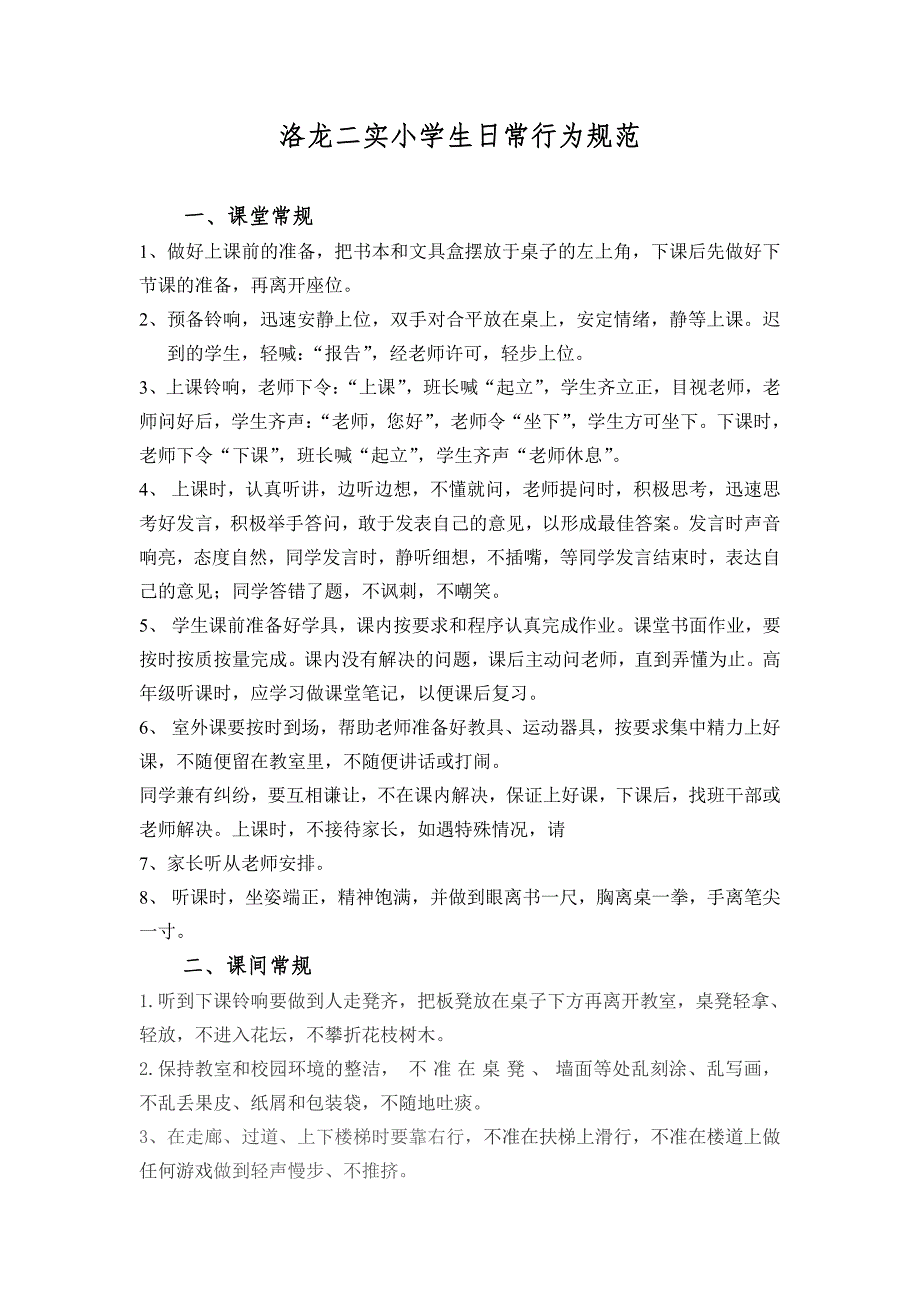 洛龙二实小学生日常行为规范
一、课堂常规
1、做好上课前的准备，把书本和文具盒摆放于桌子的左上角，下课后先做好下
节课的准备，再离开座位。
2、预备铃响，迅速安静上位，双手对合平放在桌上，安定情绪，静等上课。迟
到的学生，轻喊：“报告”，经老师许可，轻步上位。
3、上课铃响，老师下令：“上课”，班长喊“起立”，学生齐立正，目视老师，老
师问好后，学生齐声：“老师，您好”，老师令“坐下”，学生方可坐下。下课时，
老师下令“下课”，班长喊“起立”，学生齐声“老师休息”。
4、 上课时，认真听讲，边听边想，不懂就问，老师提问时，积极思考，迅速思
考好发言，积极举手答问，敢于发表自己的意见，以形成最佳答案。发言时声音
响亮，态度自然，同学发言时，静听细想，不插嘴，等同学发言结束时，表达自
己的意见；同学答错了题，不讽刺，不嘲笑。
5、 学生课前准备好学具，课内按要求和程序认真完成作业。课堂书面作业，要
按时按质按量完成。课内没有解决的问题，课后主动问老师，直到弄懂为止。高
年级听课时，应学习做课堂笔记，以便课后复习。
6、 室外课要按时到场，帮助老师准备好教具、运动器具，按要求集中精力上好
课，不随便留在教室里，不随便讲话或打闹。
同学兼有纠纷，要互相谦让，不在课内解决，保证上好课，下课后，找班干部或
老师解决。上课时，不接待家长，如遇特殊情况，请
7、家长听从老师安排。
8、 听课时，坐姿端正，精神饱满，并做到眼离书一尺，胸离桌一拳，手离笔尖
一寸。
二、课间常规
1.听到下课铃响要做到人走凳齐，把板凳放在桌子下方再离开教室，桌凳轻拿、
轻放，不进入花坛，不攀折花枝树木。
2.保持教室和校园环境的整洁， 不 准 在 桌 凳 、 墙面等处乱刻涂、乱写画，
不乱丢果皮、纸屑和包装袋，不随地吐痰。
3、在走廊、过道、上下楼梯时要靠右行，不准在扶梯上滑行，不准在楼道上做
任何游戏做到轻声慢步、不推挤。